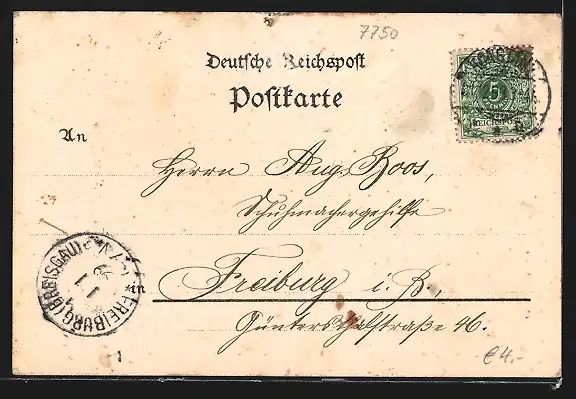 7750
Deutsche Reichspost
Postkarte
5
REICHSPOST
An
Herrn Aug. Boos,
Schuhmachergehilfe
*in Freiburg i. B.,
Güntersthalstraße 46.
FREIBURG (BREISGAU)
1
€ 4.-